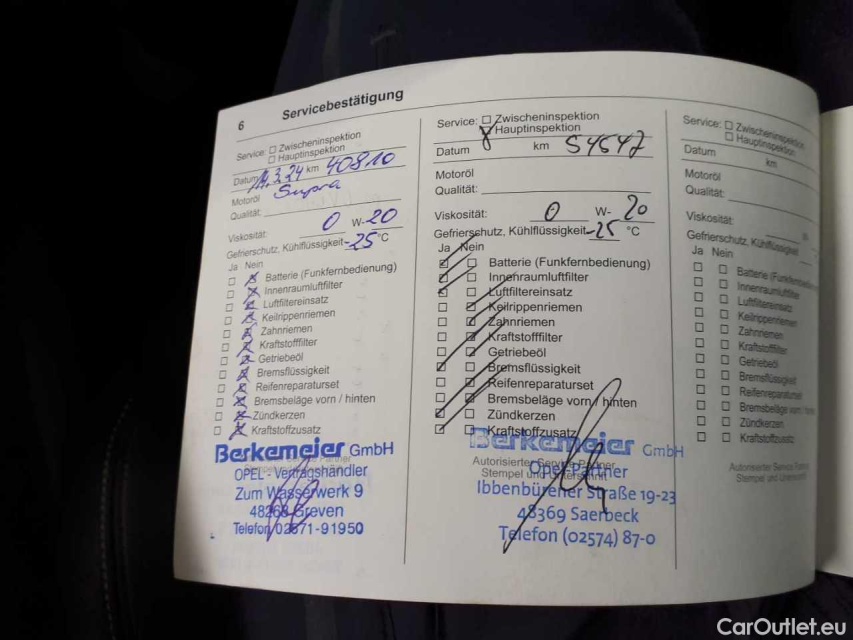 6 Servicebestätigung
Service: Zwischeninspektion
Hauptinspektion
Datum 3.24 km 40810
Motoröl Supra
Qualität:
Viskosität: 0 W-20
Gefrierschutz, Kühlflüssigkeit -25 °C
Ja Nein
Batterie (Funkfernbedienung)
Innenraumluftfilter
Luftfiltereinsatz
Keilrippenriemen
Zahnriemen
Kraftstofffilter
Getriebeöl
Bremsflüssigkeit
Reifenreparaturset
Bremsbeläge vorn / hinten
Zündkerzen
Kraftstoffzusatz
Berkemeier GmbH
OPEL - Vertragshändler
Zum Wasserwerk 9
48268 Greven
Telefon 02571-91950
Service: Zwischeninspektion
Hauptinspektion
Datum km 54547
Motoröl
Qualität:
Viskosität: 0 W- 20
Gefrierschutz, Kühlflüssigkeit -25 °C
Ja Nein
Batterie (Funkfernbedienung)
Innenraumluftfilter
Luftfiltereinsatz
Keilrippenriemen
Zahnriemen
Kraftstofffilter
Getriebeöl
Bremsflüssigkeit
Reifenreparaturset
Bremsbeläge vorn / hinten
Zündkerzen
Kraftstoffzusatz
Berkemeier GmbH
Autorisierter Service Partner
Stempel und Unterschrift
Opel-Partner
Ibbenbürener Straße 19-23
48369 Saerbeck
Telefon (02574) 87-0
Service: Zwischeninspektion
Hauptinspektion
Datum km
Motoröl
Qualität:
Viskosität:
Gefrierschutz, Kühlflüssigkeit
Ja Nein
Batterie (Funkfernbedien
Innenraumluftfilter
Luftfiltereinsatz
Keilrippenriemen
Zahnriemen
Kraftstofffilter
Getriebeöl
Bremsflüssigkeit
Reifenreparaturset
Bremsbeläge vorn
Zündkerzen
Kraftstoffzusatz
Autorisierter Service
Stempel und
CarOutlet.eu